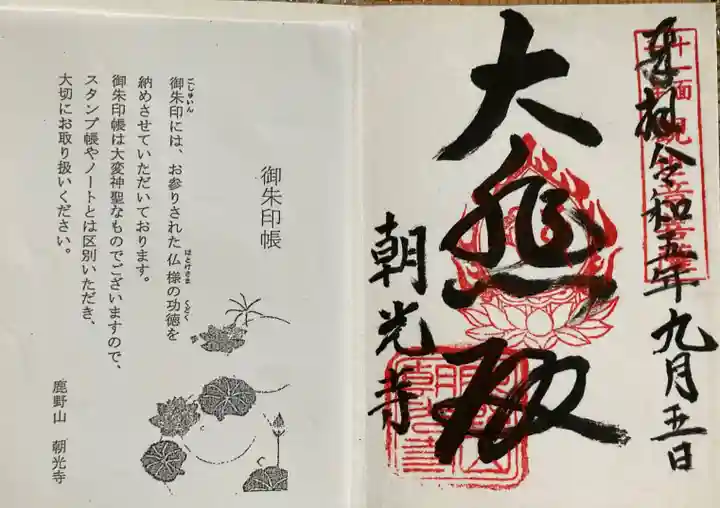 奉拝 令和五年 九月五日
十一面観世音菩薩
大悲殿
朝光寺
御朱印帳
御朱印には、お参りされた仏様の功徳を
ごしゅいん
ほとけさま
くどく
納めさせていただいております。
御朱印帳は大変神聖なものでございますので、
スタンプ帳やノートとは区別いただき、
大切にお取り扱いください。
鹿野山 朝光寺